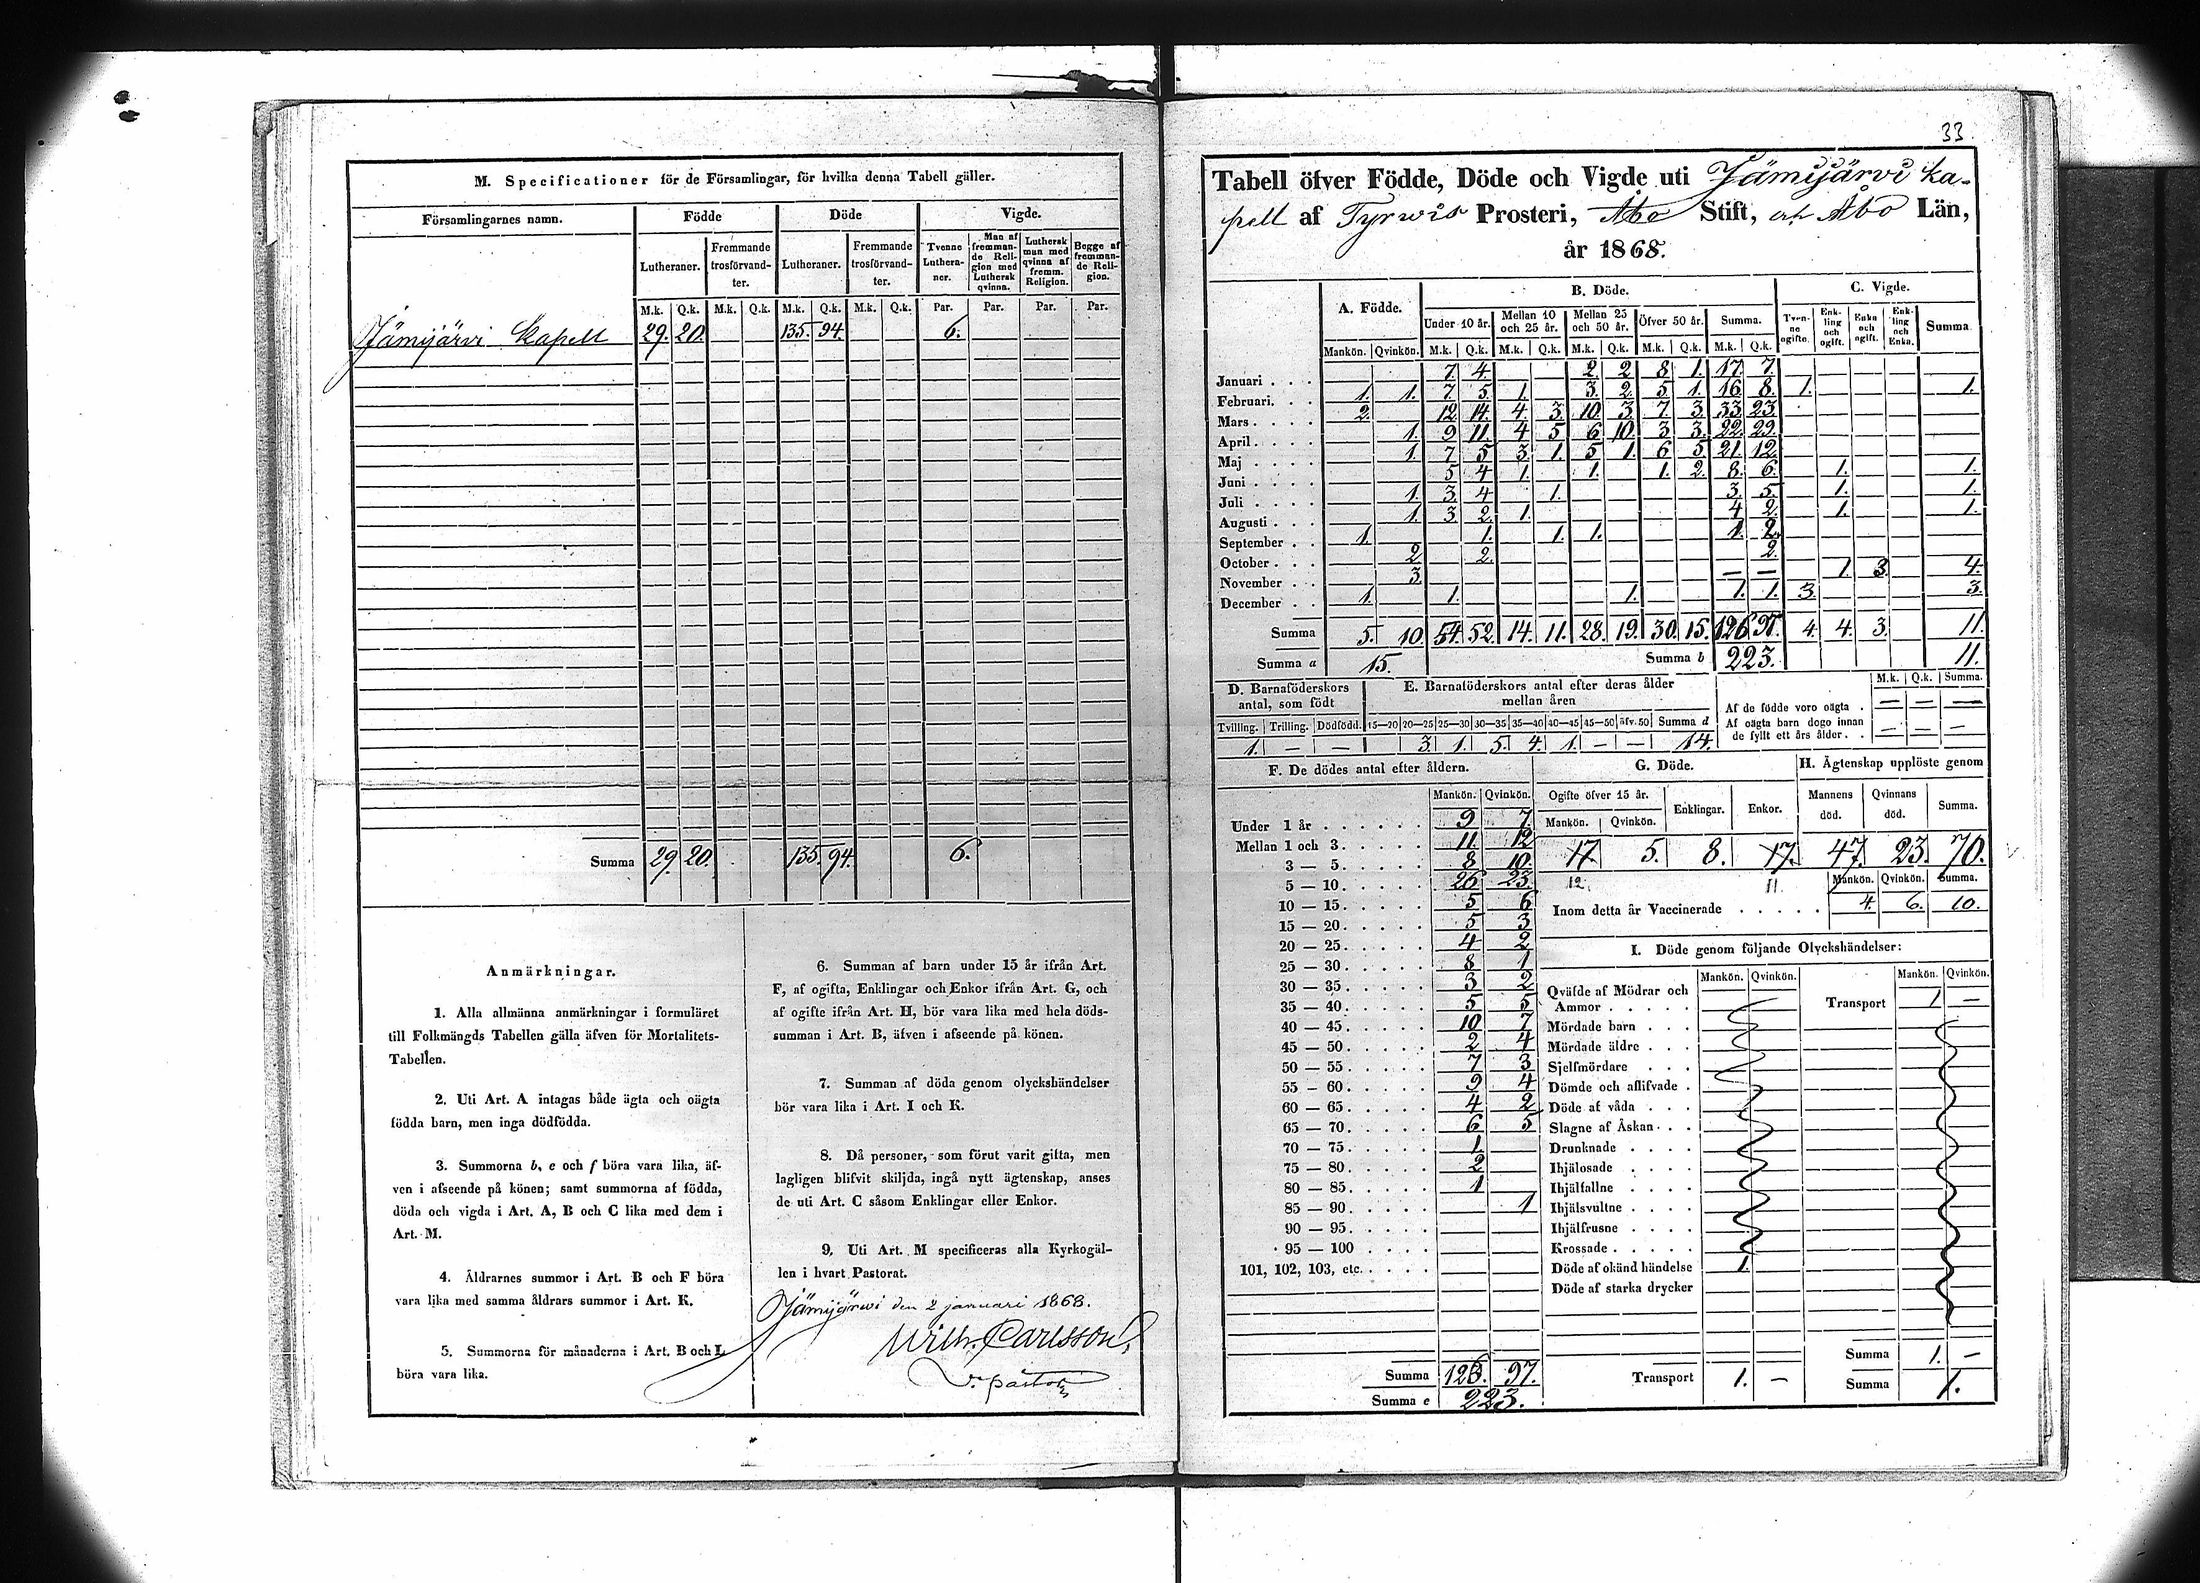 M. Specificationer för de Församlingar, för hvilka denna Tabell gäller.
Församlingarnes namn. Födde Döde Vigde.
Lutheraner. Fremmande trosförvandter. Lutheraner. Fremmande trosförvandter. Tvenne Lutheraner. Man af fremmande Religion med Luthersk qvinna. Luthersk man med qvinna af fremm. Religion. Begge af fremmande Religion.
M.k. Q.k. M.k. Q.k. M.k. Q.k. M.k. Q.k. Par. Par. Par. Par.
Jämijärvi Kapell 29. 20. 135. 94. 6.
Summa 29. 20. 135. 94. 6.
Anmärkningar.
1. Alla allmänna anmärkningar i formuläret
till Folkmängds Tabellen gälla äfven för Mortalitets-
Tabellen.
2. Uti Art. A intagas både ägta och oägta
födda barn, men inga dödfödda.
3. Summorna b, e och f böra vara lika, äf-
ven i afseende på könen; samt summorna af födda,
döda och vigda i Art. A, B och C lika med dem i
Art. M.
4. Åldrarnes summor i Art. B och F böra
vara lika med samma åldrars summor i Art. K.
5. Summorna för månaderna i Art. B och L
böra vara lika.
6. Summan af barn under 15 år ifrån Art.
F, af ogifta, Enklingar och Enkor ifrån Art. G, och
af ogifte ifrån Art. H, bör vara lika med hela döds-
summan i Art. B, äfven i afseende på könen.
7. Summan af döda genom olyckshändelser
bör vara lika i Art. I och K.
8. Då personer, som förut varit gifta, men
lagligen blifvit skiljda, ingå nytt ägtenskap, anses
de uti Art. C såsom Enklingar eller Enkor.
9. Uti Art. M specificeras alla Kyrkogäl-
len i hvart Pastorat.
Jämijärwi den 2 januari 1868.
Wilh. Carlsson,
v. pastor
33
Tabell öfver Födde, Döde och Vigde uti Jämijärvi ka-
pell af Tyrwis Prosteri, Åbo Stift, och Åbo Län,
år 1868.
A. Födde. B. Döde. C. Vigde.
Under 10 år. Mellan 10 och 25 år. Mellan 25 och 50 år. Öfver 50 år. Summa. Tvenne ogifte. Enkling och ogift. Enka och ogift. Enkling och Enka. Summa
Mankön. Qvinkön. M.k. Q.k. M.k. Q.k. M.k. Q.k. M.k. Q.k. M.k. Q.k.
Januari . . . 7. 4. 2. 2 8 1. 17. 7.
Februari. . . 1. 1. 7. 5. 1. 3. 2. 5. 1. 16. 8. 1. 1.
Mars . . . . 2. 12. 14. 4. 3. 10. 3. 7. 3. 33. 23.
April . . . . 1. 9 11. 4 5 6 10. 3 3. 22. 29.
Maj . . . . 1. 7 5 3. 1. 5 1. 6 5 21. 12.
Juni . . . . 5 4 1. 1. 1. 2. 8. 6. 1. 1.
Juli . . . . 1. 3. 4 1. 3. 5. 1. 1.
Augusti . . . 1. 3. 2. 1. 4 2. 1. 1.
September . . 1. 1. 1. 1. 1. 2.
October . . . 2 2. 2.
November . . 3. — — 1. 3. 4.
December . . 1. 1. 1. 1. 1. 3. 3.
Summa 5. 10. 54. 52. 14. 11. 28. 19. 30. 15. 126. 97. 4. 4. 3. 11.
Summa a 15. Summa b 223. 11.
D. Barnaföderskors antal, som födt
Tvilling. Trilling. Dödfödd.
1. — —
E. Barnaföderskors antal efter deras ålder mellan åren
15—20 20—25 25—30 30—35 35—40 40—45 45—50 öfv. 50 Summa d
3. 1. 5. 4. 1. — — 14.
M.k. Q.k. Summa.
Af de födde voro oägta . — — —
Af oägta barn dogo innan
de fyllt ett års ålder. . — — —
F. De dödes antal efter åldern.
Mankön. Qvinkön.
Under 1 år . . . . . . 9 7.
Mellan 1 och 3. . . . . 11. 12
3 — 5. . . . . 8 10.
5 — 10. . . . . 26 23.
10 — 15. . . . . 5 6
15 — 20. . . . . 5 3
20 — 25. . . . . 4 2
25 — 30. . . . . 8 1
30 — 35. . . . . 3 2
35 — 40. . . . . 5 5
40 — 45. . . . . 10 7
45 — 50. . . . . 2 4
50 — 55. . . . . 7 3
55 — 60. . . . . 9 4
60 — 65. . . . . 4 2
65 — 70. . . . . 6 5
70 — 75. . . . . 1.
75 — 80. . . . . 2
80 — 85. . . . . 1
85 — 90. . . . . 1
90 — 95. . . . .
95 — 100 . . . .
101, 102, 103, etc. . . . .
Summa 126. 97.
Summa e 223.
G. Döde.
Ogifte öfver 15 år. Enklingar. Enkor.
Mankön. Qvinkön.
17. 5. 8. 17.
12. 11.
H. Ägtenskap upplöste genom
Mannens död. Qvinnans död. Summa.
47. 23. 70.
Mankön. Qvinkön. Summa.
Inom detta år Vaccinerade . . . . . 4. 6. 10.
I. Döde genom följande Olyckshändelser:
Mankön. Qvinkön. Mankön. Qvinkön.
Qväfde af Mödrar och
Ammor . . . . . Transport 1. —
Mördade barn . . .
Mördade äldre . . .
Sjelfmördare . . .
Dömde och aflifvade .
Döde af våda . . .
Slagne af Åskan . . .
Drunknade . . . .
Ihjälosade . . . .
Ihjälfallne . . . .
Ihjälsvultne . . . .
Ihjälfrusne . . . .
Krossade . . . . .
Döde af okänd händelse 1.
Döde af starka drycker
Summa 1. —
Transport 1. — Summa 1.